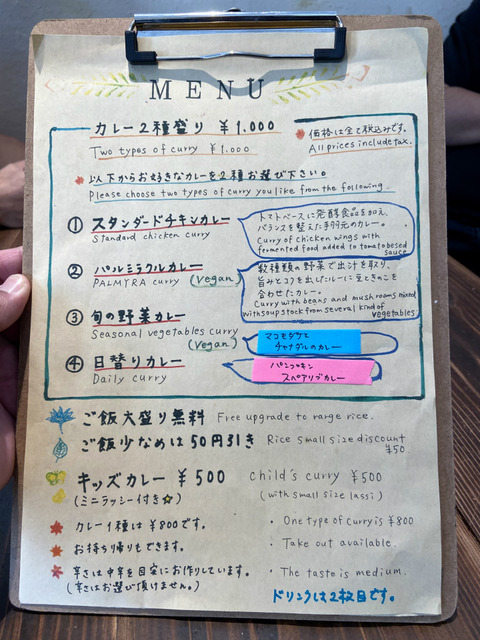 MENU
カレー2種盛り ¥1.000
Two types of curry ¥1.000
価格は全て税込みです。
All prices include tax.
以下からお好きなカレーを2種お選び下さい。
Please choose two types of curry you like from the following.
① スタンダードチキンカレー
Standard chicken curry
トマトベースに発酵食品を加え、
バランスを整えた手羽元のカレー。
Curry of chicken wings with
fermented food added to tomato besed
sauce
② パルミラクルカレー
PALMYRA curry (Vegan)
数種類の野菜で出汁を取り、
旨みとコクを出したルーに豆ときのこを
合わせたカレー。
Curry with beans and mushrooms mixed
with soup stock from several kind of
vegetables
③ 旬の野菜カレー
Seasonal vegetables curry
(Vegan)
マコモダケと
チャナダルのカレー
④ 日替りカレー
Daily curry
パンプキン
スペアリブカレー
ご飯大盛り無料 Free upgrade to range rice.
ご飯少なめは50円引き Rice small size discount
¥50.
キッズカレー ¥500 child's curry ¥500
(ミニラッシー付き☆) (with small size lassi)
カレー1種は¥800です。 ・One type of curry is ¥800
お持ち帰りもできます。 ・Take out available.
辛さは中辛を目安にお作りしています。 ・The taste is medium.
(辛さはお選び頂けません。)
ドリンクは2枚目です。